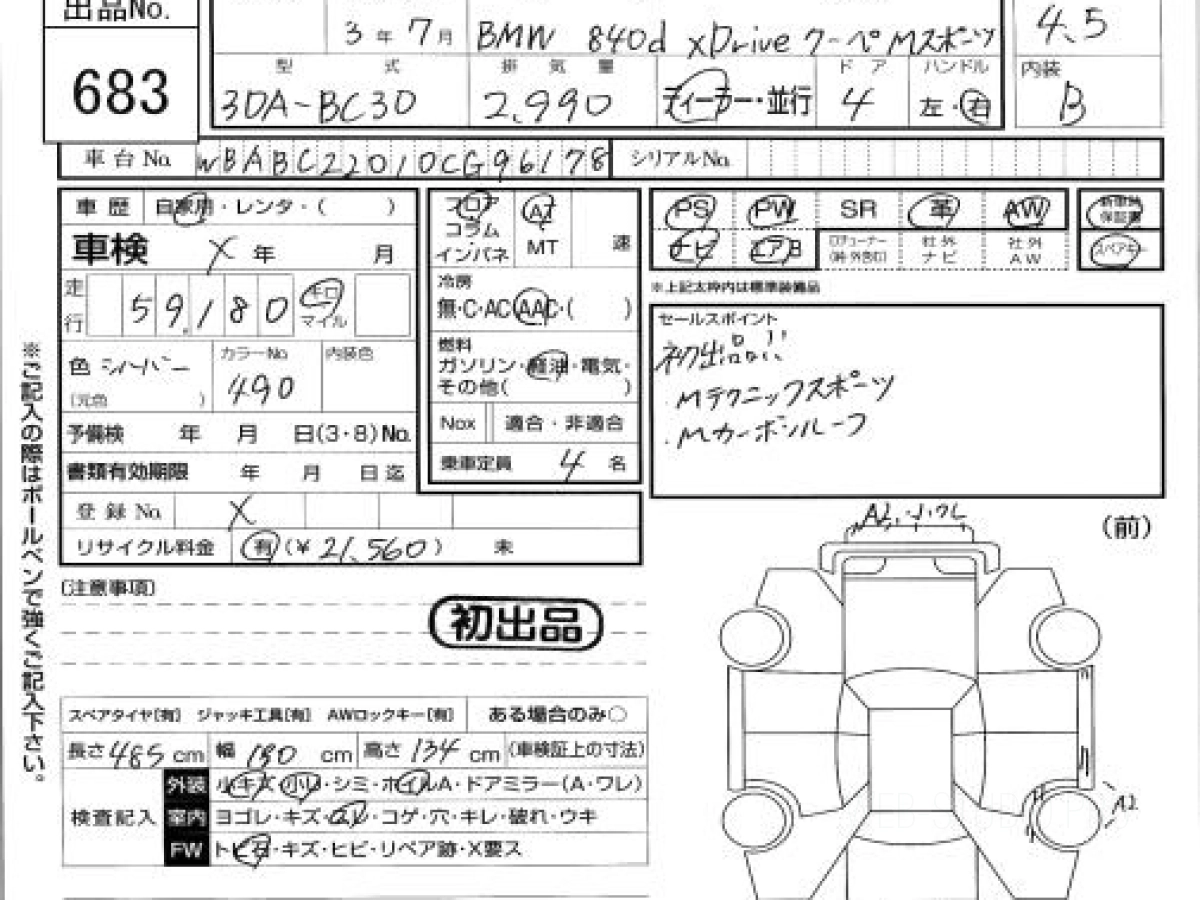 出品No.
683
3年 7月 BMW 840d xDrive クーペ Mスポーツ
4.5
型 式 排 気 量 ドア ハンドル 内装
3DA-BC30 2,990 ディーラー・並行 4 左・右 B
車台No. WBABC22010CG96178 シリアルNo.
車歴 自家用・レンタ・( )
車検 X 年 月
走行 59,180 キロ マイル
色 シルバー カラーNo 490 内装色
(元色 )
予備検 年 月 日(3・8)No.
書類有効期限 年 月 日迄
登録No. X
リサイクル料金 有 (¥ 21,560) 未
フロア コラム インパネ
AT MT 速
冷房
無・C・AC・AAC・( )
燃料
ガソリン・軽油・電気・
その他( )
Nox 適合・非適合
乗車定員 4 名
PS PW SR 革 AW
ナビ エアB 社外ナビ 社外AW
新車時保証書
スペアキー
※上記太枠内は標準装備品
セールスポイント
初出品!!
・Mテクニックスポーツ
・Mカーボンルーフ
※ご記入の際はボールペンで強くご記入下さい。
[注意事項]
初出品
(前)
スペアタイヤ[有] ジャッキ工具[有] AWロックキー[有] ある場合のみ○
長さ 485 cm 幅 190 cm 高さ 134 cm (車検証上の寸法)
検査記入
外装 小キズ・小凹・シミ・ホイルA・ドアミラー(A・ワレ)
室内 ヨゴレ・キズ・スレ・コゲ・穴・キレ・破れ・ウキ
FW トビ石・キズ・ヒビ・リペア跡・X要ス
A2